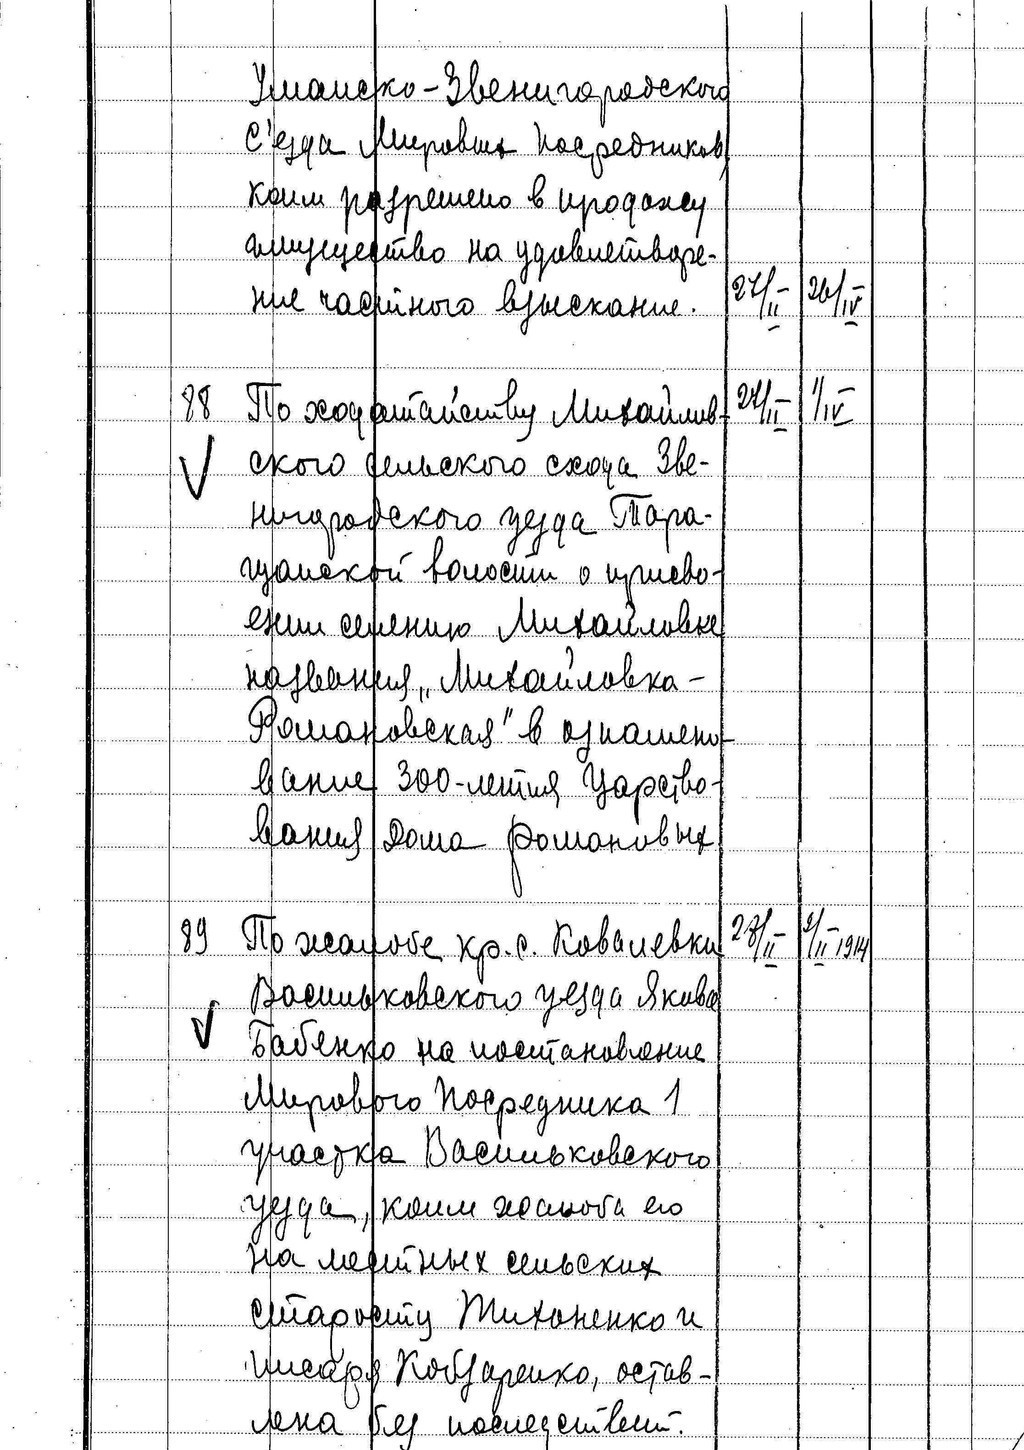 Уманско-Звенигородского
С'езда Мировых Посредников,
коим разрешено в продажу
имущество на удовлетворе-
ние частного взыскание. 27/II 26/IV
88 По ходатайству Михайлов- 27/II 1/IV
ского сельского схода Зве-
нигородского уезда Тара-
щанской волости о присво-
ении селению Михайловке
названия „Михайловка-
Романовская" в ознамено-
вание 300-летия Царство-
вания Дома Романовых
89 По жалобе кр. с. Ковалевки 28/II 9/II 1914
Васильковского уезда Якова
Бабенко на постановление
Мирового Посредника 1
участка Васильковского
уезда, коим жалоба его
на местных сельских
старосту Тихоненко и
писаря Кобзаренко, остав-
лена без последствий.